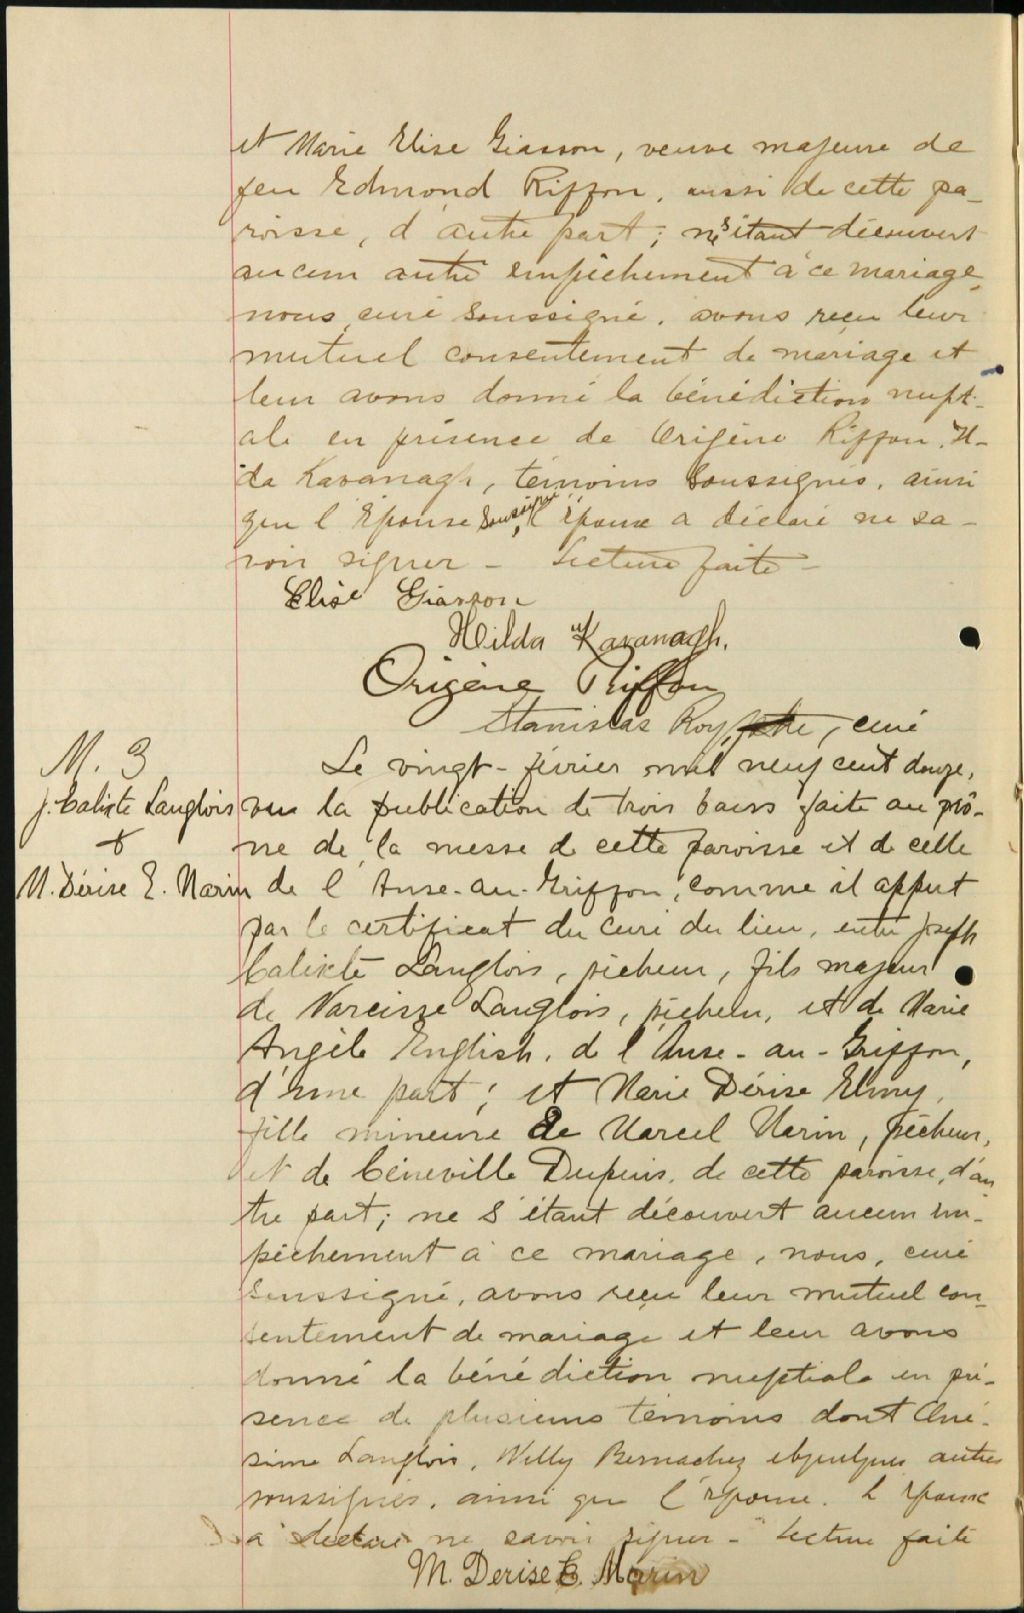 et Marie Elise Giasson, veuve majeure de
feu Edmond Riffon, aussi de cette pa-
roisse, d'autre part; ne s'étant découvert
aucun autre empêchement à ce mariage,
nous, curé soussigné, avons reçu leur
mutuel consentement de mariage et
leur avons donné la bénédiction nupti-
ale en présence de Origène Riffon, H-
da Kavanagh, témoins soussignés, ainsi
que l'épouse soussignée, l'époux a déclaré ne sa-
voir signer - Lecture faite -
Elise Giasson
Hilda Kavanagh.
Origène Riffon
Stanislas Roy, ptre, curé
M. 3
J. Calixte Langlois
&
M. Dérise E. Marin
Le vingt-février mil neuf cent douze,
vu la publication de trois bans faite au prô-
ne de la messe de cette paroisse et de celle
de l'Anse-au-Griffon, comme il appert
par le certificat du curé du lieu, entre Joseph
Calixte Langlois, pêcheur, fils majeur
de Narcisse Langlois, pêcheur, et de Marie
Angèle English, de l'Anse-au-Griffon,
d'une part; et Marie Dérise Elmy,
fille mineure de Marcel Marin, pêcheur,
et de Céneville Dupuis, de cette paroisse, d'au
tre part; ne s'étant découvert aucun em-
pêchement à ce mariage, nous, curé
soussigné, avons reçu leur mutuel con-
sentement de mariage et leur avons
donné la bénédiction nuptiale en pré-
sence de plusieurs témoins dont Oné-
sime Langlois, Willy Bernachez et quelques autres
soussignés, ainsi que l'épouse. L'époux
a déclaré ne savoir signer - Lecture faite
M. Derise E. Marin